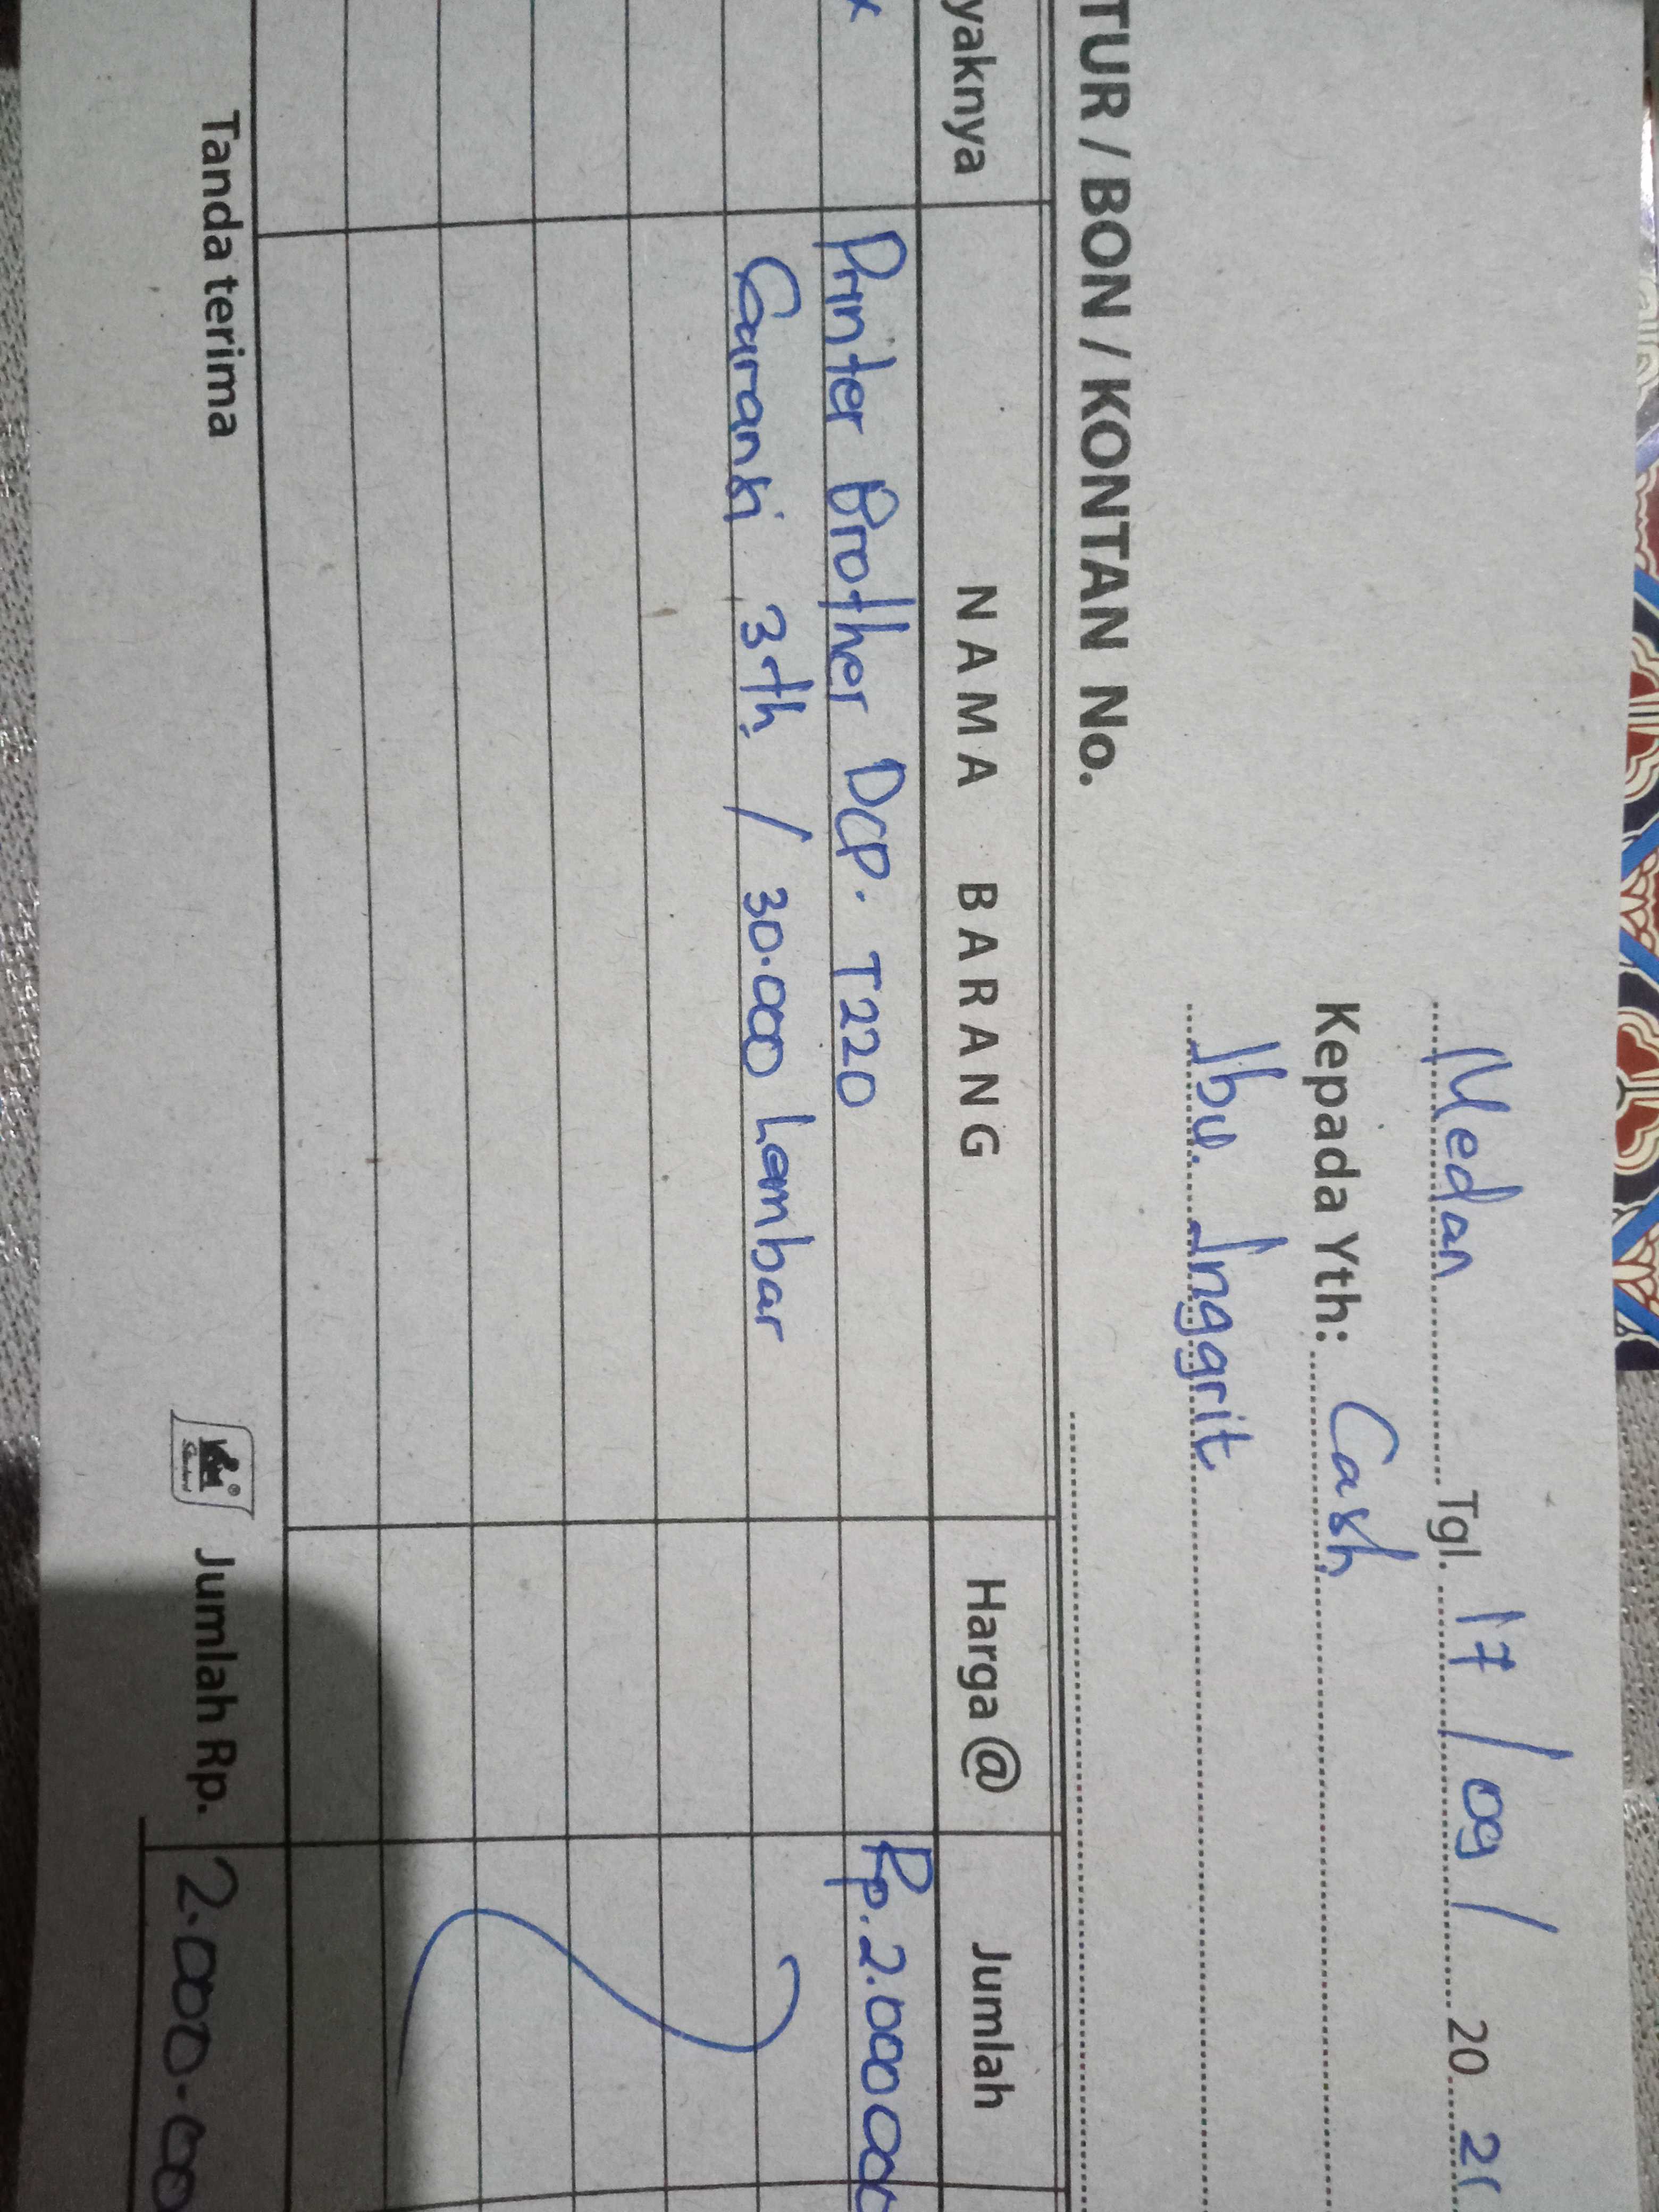 Medan Tgl. 17 / 09 / 20 21
Kepada Yth: Cash
Ibu. Inggrit
TUR / BON / KONTAN No.
yaknya NAMA BARANG Harga @ Jumlah
Printer Brother DCP. T220 Rp. 2.000.000
Garansi 3th / 30.000 Lembar
Tanda terima Jumlah Rp. 2.000.00